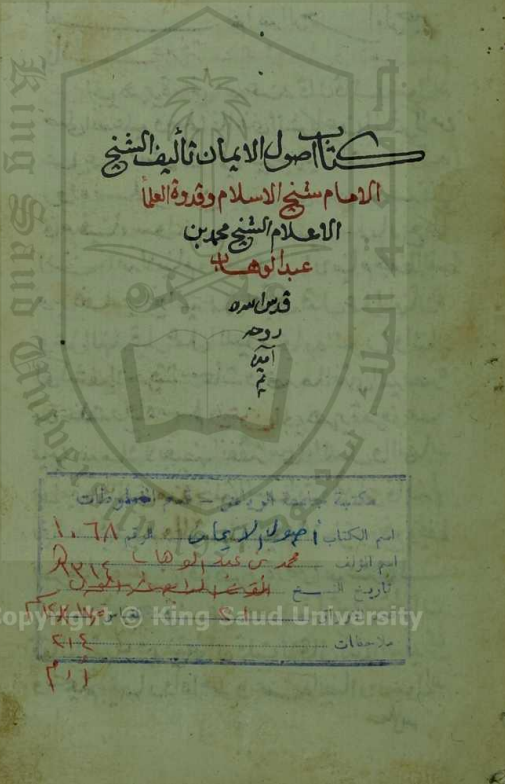 كتاب اصول الايمان تأليف الشيخ
الامام شيخ الاسلام وقدوة العلمأ
الاعلام الشيخ محمد بن
عبد الوهاب
قدس الله
روحه
آمين
م
مكتبة جامعة الرياض - قسم المخطوطات
اسم الكتاب أصول الايمان الرقم ١٠٦٨
اسم المؤلف محمد بن عبد الوهاب
تاريخ النسخ
ملاحظات ٢١٤
Copyright © King Saud University
King Saud University